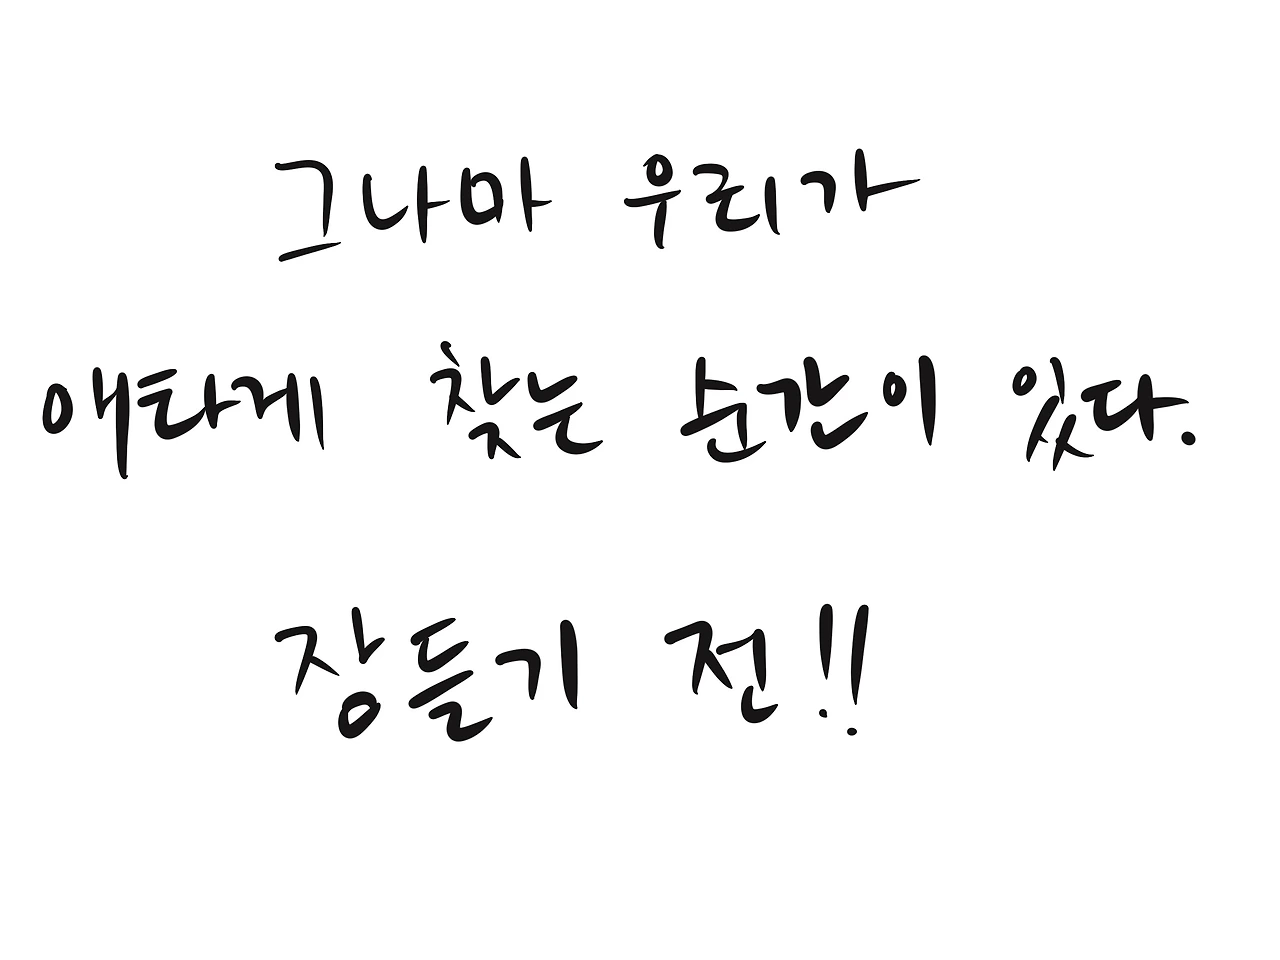 그나마 우리가
애타게 찾는 순간이 있다.
장들기 전!!